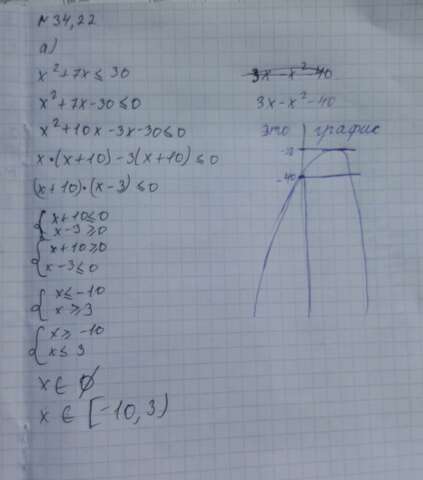 №34,22
а)
x²+7x≤30
x²+7x-30≤0
x²+10x-3x-30≤0
x·(x+10)-3(x+10)≤0
(x+10)·(x-3)≤0
x+10≤0
x-3≥0
x+10≥0
x-3≤0
x≤-10
x≥3
x≥-10
x≤3
x∈∅
x∈[-10,3)
3x-x²-40
3x-x²-40
это график
-40